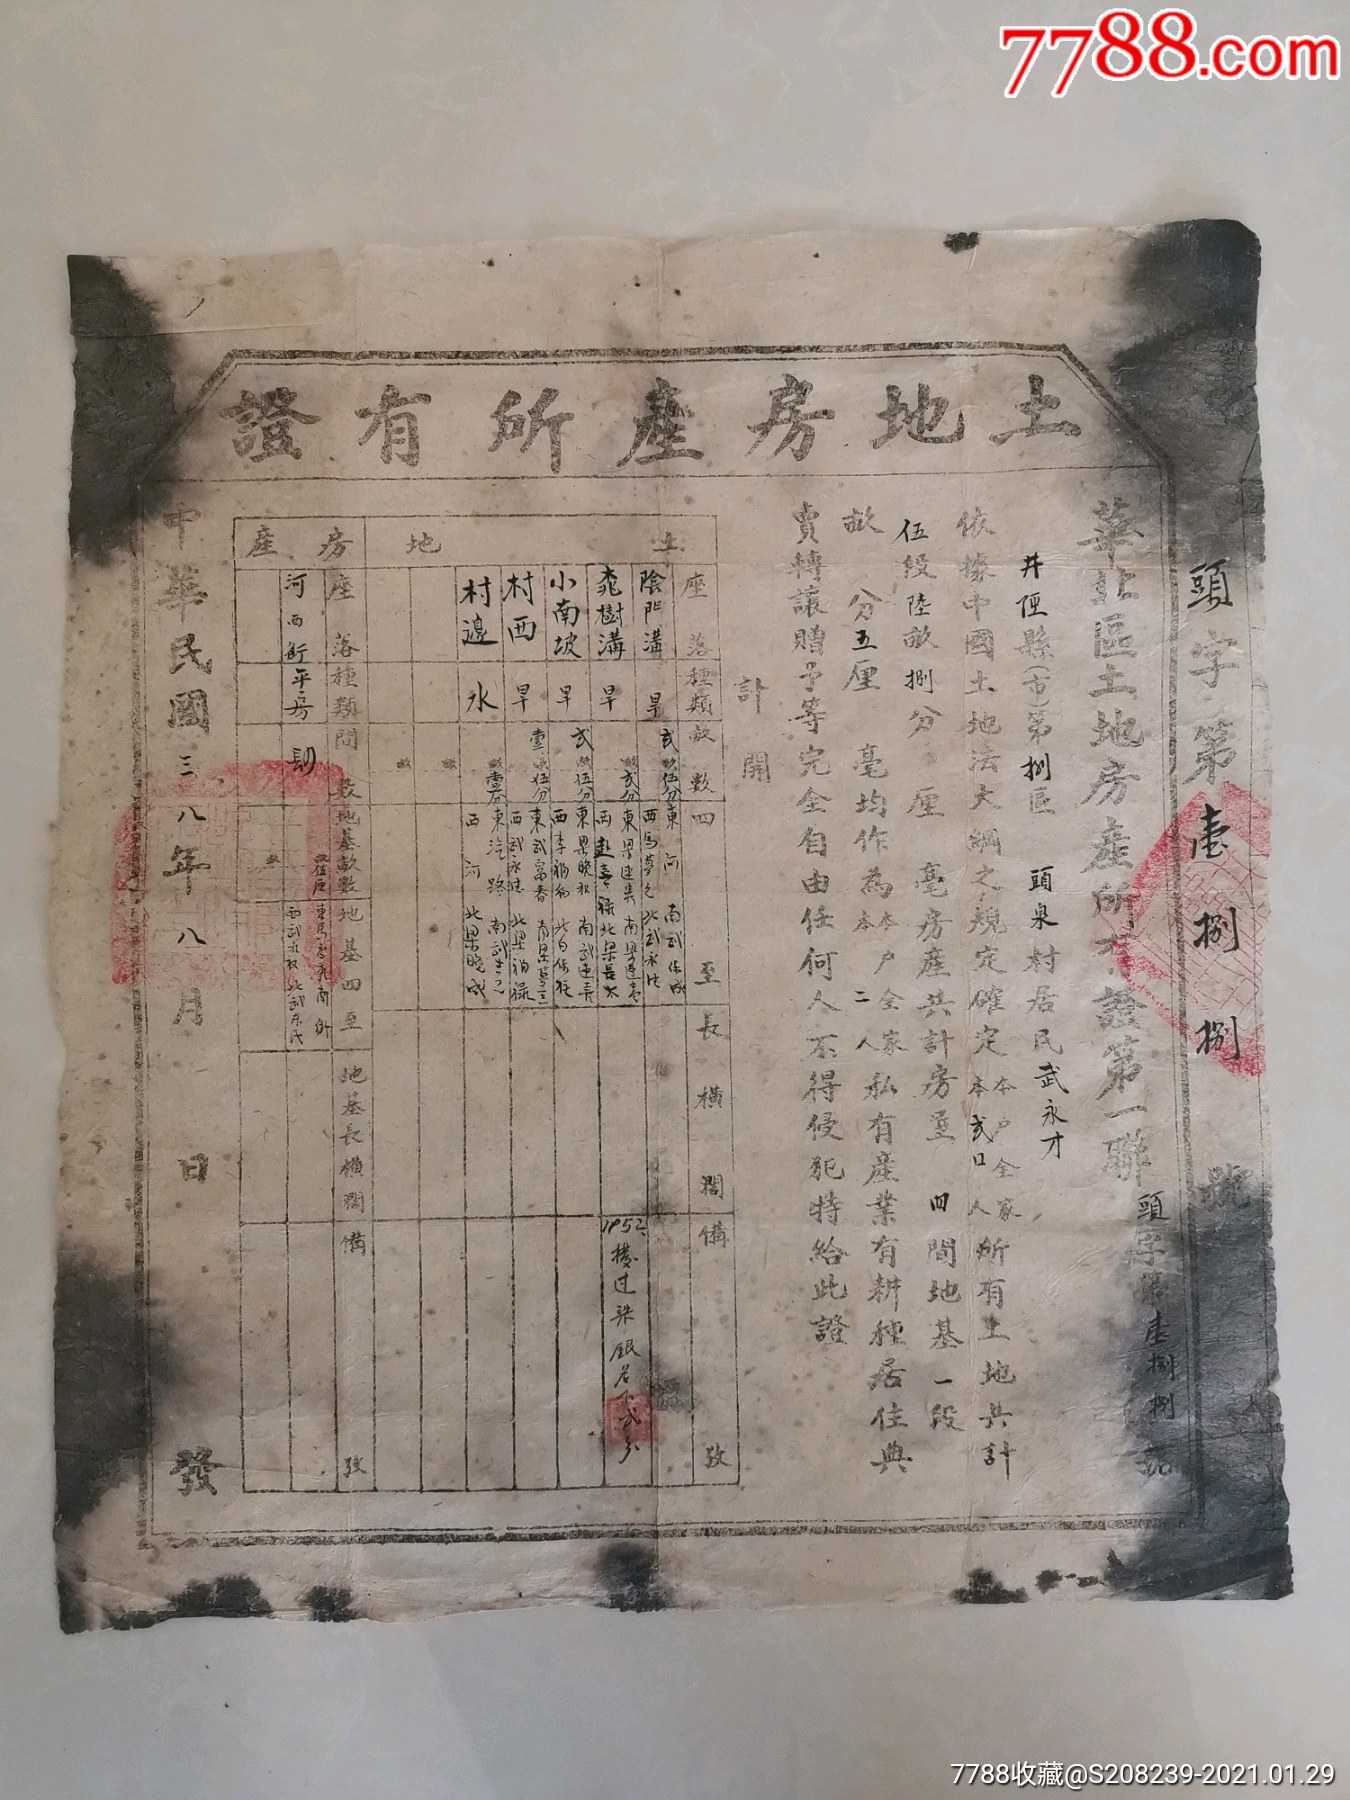 7788.com
土地房產所有證
頭字第壹捌捌號
華北區土地房產所有證第一聯
頭字第壹捌捌號
井陘縣(市)第捌區 頭泉村居民武永才
依據中國土地法大綱之規定確定本戶全家本人弍口人所有土地共計
伍段陸畝捌分 厘 毫房產共計房屋 四間地基一段
畝 分五厘 毫均作為本戶全家本人二人私有產業有耕種居住典
賣轉讓贈予等完全自由任何人不得侵犯特給此證
計開
土地
座落 種類 畝數 四至 長橫濶 備攷
陰門溝 旱 弍畝伍分 東河 南武 成 西馬夢 北武永
桃樹溝 旱 畝弍分 東 南 西趙 北梁
小南坡 旱 弍畝伍分 東梁晚 南武 西李 北
村西 旱 壹畝伍分 東武 春 南梁 西武永 北梁 祿
村邊 水 畝壹分 東汽路 南武 西河 北梁晚成
1952
房產
座落 種類 間數 地基畝數 地基四至 地基長橫濶 備攷
河西街 平房 四 畝 伍厘 東馬 南街 西武永 北武 氏
中華民國三八年八月 日 發
7788收藏@S208239-2021.01.29